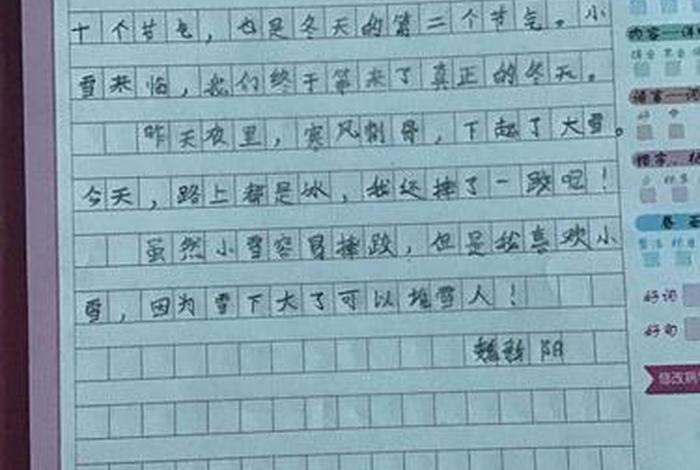 十个节气，也是冬天的第二个节气。小
雪来临，我们终于等来了真正的冬天。
昨天夜里，寒风刺骨，下起了大雪。
今天，路上都是冰，我还摔了一跤呢！
虽然小雪容易摔跤，但是我喜欢小
雪，因为雪下大了可以堆雪人！
阳
好词
好句